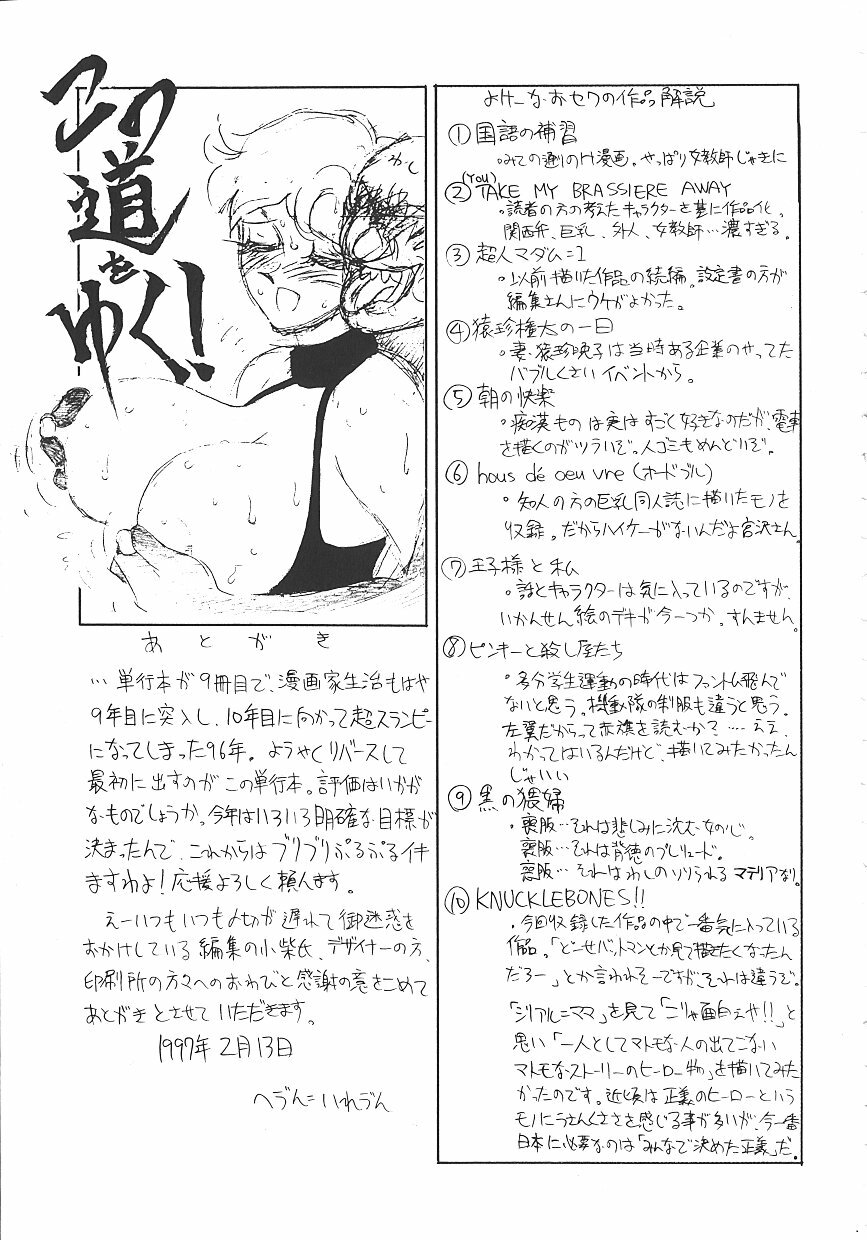 この
道
を
ゆく!
あとがき
…単行本が9冊目で、漫画家生活もはや
9年目に突入し、10年目に向かって超スランピー
になってしまった96年。ようやくリバースして
最初に出すのがこの単行本。評価はいかが
なものでしょうか。今年はいろいろ明確な目標が
決まったんで、これからはブリブリぷるぷるイキ
ますわよ!応援よろしく頼んます。
えーいつもいつも〆切が遅れて御迷惑を
おかけしている編集の小柴氏、デザイナーの方、
印刷所の方々へのおわびと感謝の意をこめて
あとがきとさせていただきます。
1997年2月13日
へづん=いれづん
よけーなおセワの作品解説
①国語の補習
。みての通りのH漫画。やっぱり女教師じゃきに
②(You)TAKE MY BRASSIERE AWAY
。読者の方の考えたキャラクターを基に作品化。
関西弁、巨乳、外人、女教師…濃すぎる。
③超人マダム=1
。以前描いた作品の続編。設定書の方が
編集さんにウケがよかった。
④猿珍権太の一日
。妻・猿珍映子は当時ある企業のやってた
バブルくさいイベントから。
⑤朝の快楽
。痴漢ものは実はすごく好きなのだが、電車
を描くのがツラいぞ。人ゴミもめんどいぞ。
⑥hous de oeuvre(オードブル)
。知人の方の巨乳同人誌に描いたモノを
収録。だからハイケーがないんだよ宮沢さん。
⑦王子様と私
。話とキャラクターは気に入っているのですが、
いかんせん絵のデキが今一つか。すんません。
⑧ピンキーと殺し屋たち
。多分学生運動の時代はファントム飛んで
ないと思う。機動隊の制服も違うと思う。
左翼だからって赤旗を読むか?…ええ、
わかってはいるんだけど、描いてみたかったん
じゃいい
⑨黒の猥婦
。喪服…それは悲しみに沈む女の心。
喪服…それは背徳のプレリュード。
喪服…それはわしのソソられるマテリアなり。
⑩KNUCKLEBONES!!
。今回収録した作品の中で一番気に入っている
作品。「どーせバットマンとか見て描きたくなったん
だろー」とか言われそーですが、それは違うぞ。
「シリアル=ママ」を見て「こりゃ面白えや!!」と
思い「一人としてマトモな人の出てこない
マトモなストーリーのヒーロー物」を描いてみた
かったのです。近頃は正義のヒーローという
モノにうさんくささを感じる事が多いが、今一番
日本に必要なのは「みんなで決めた正義」だ。